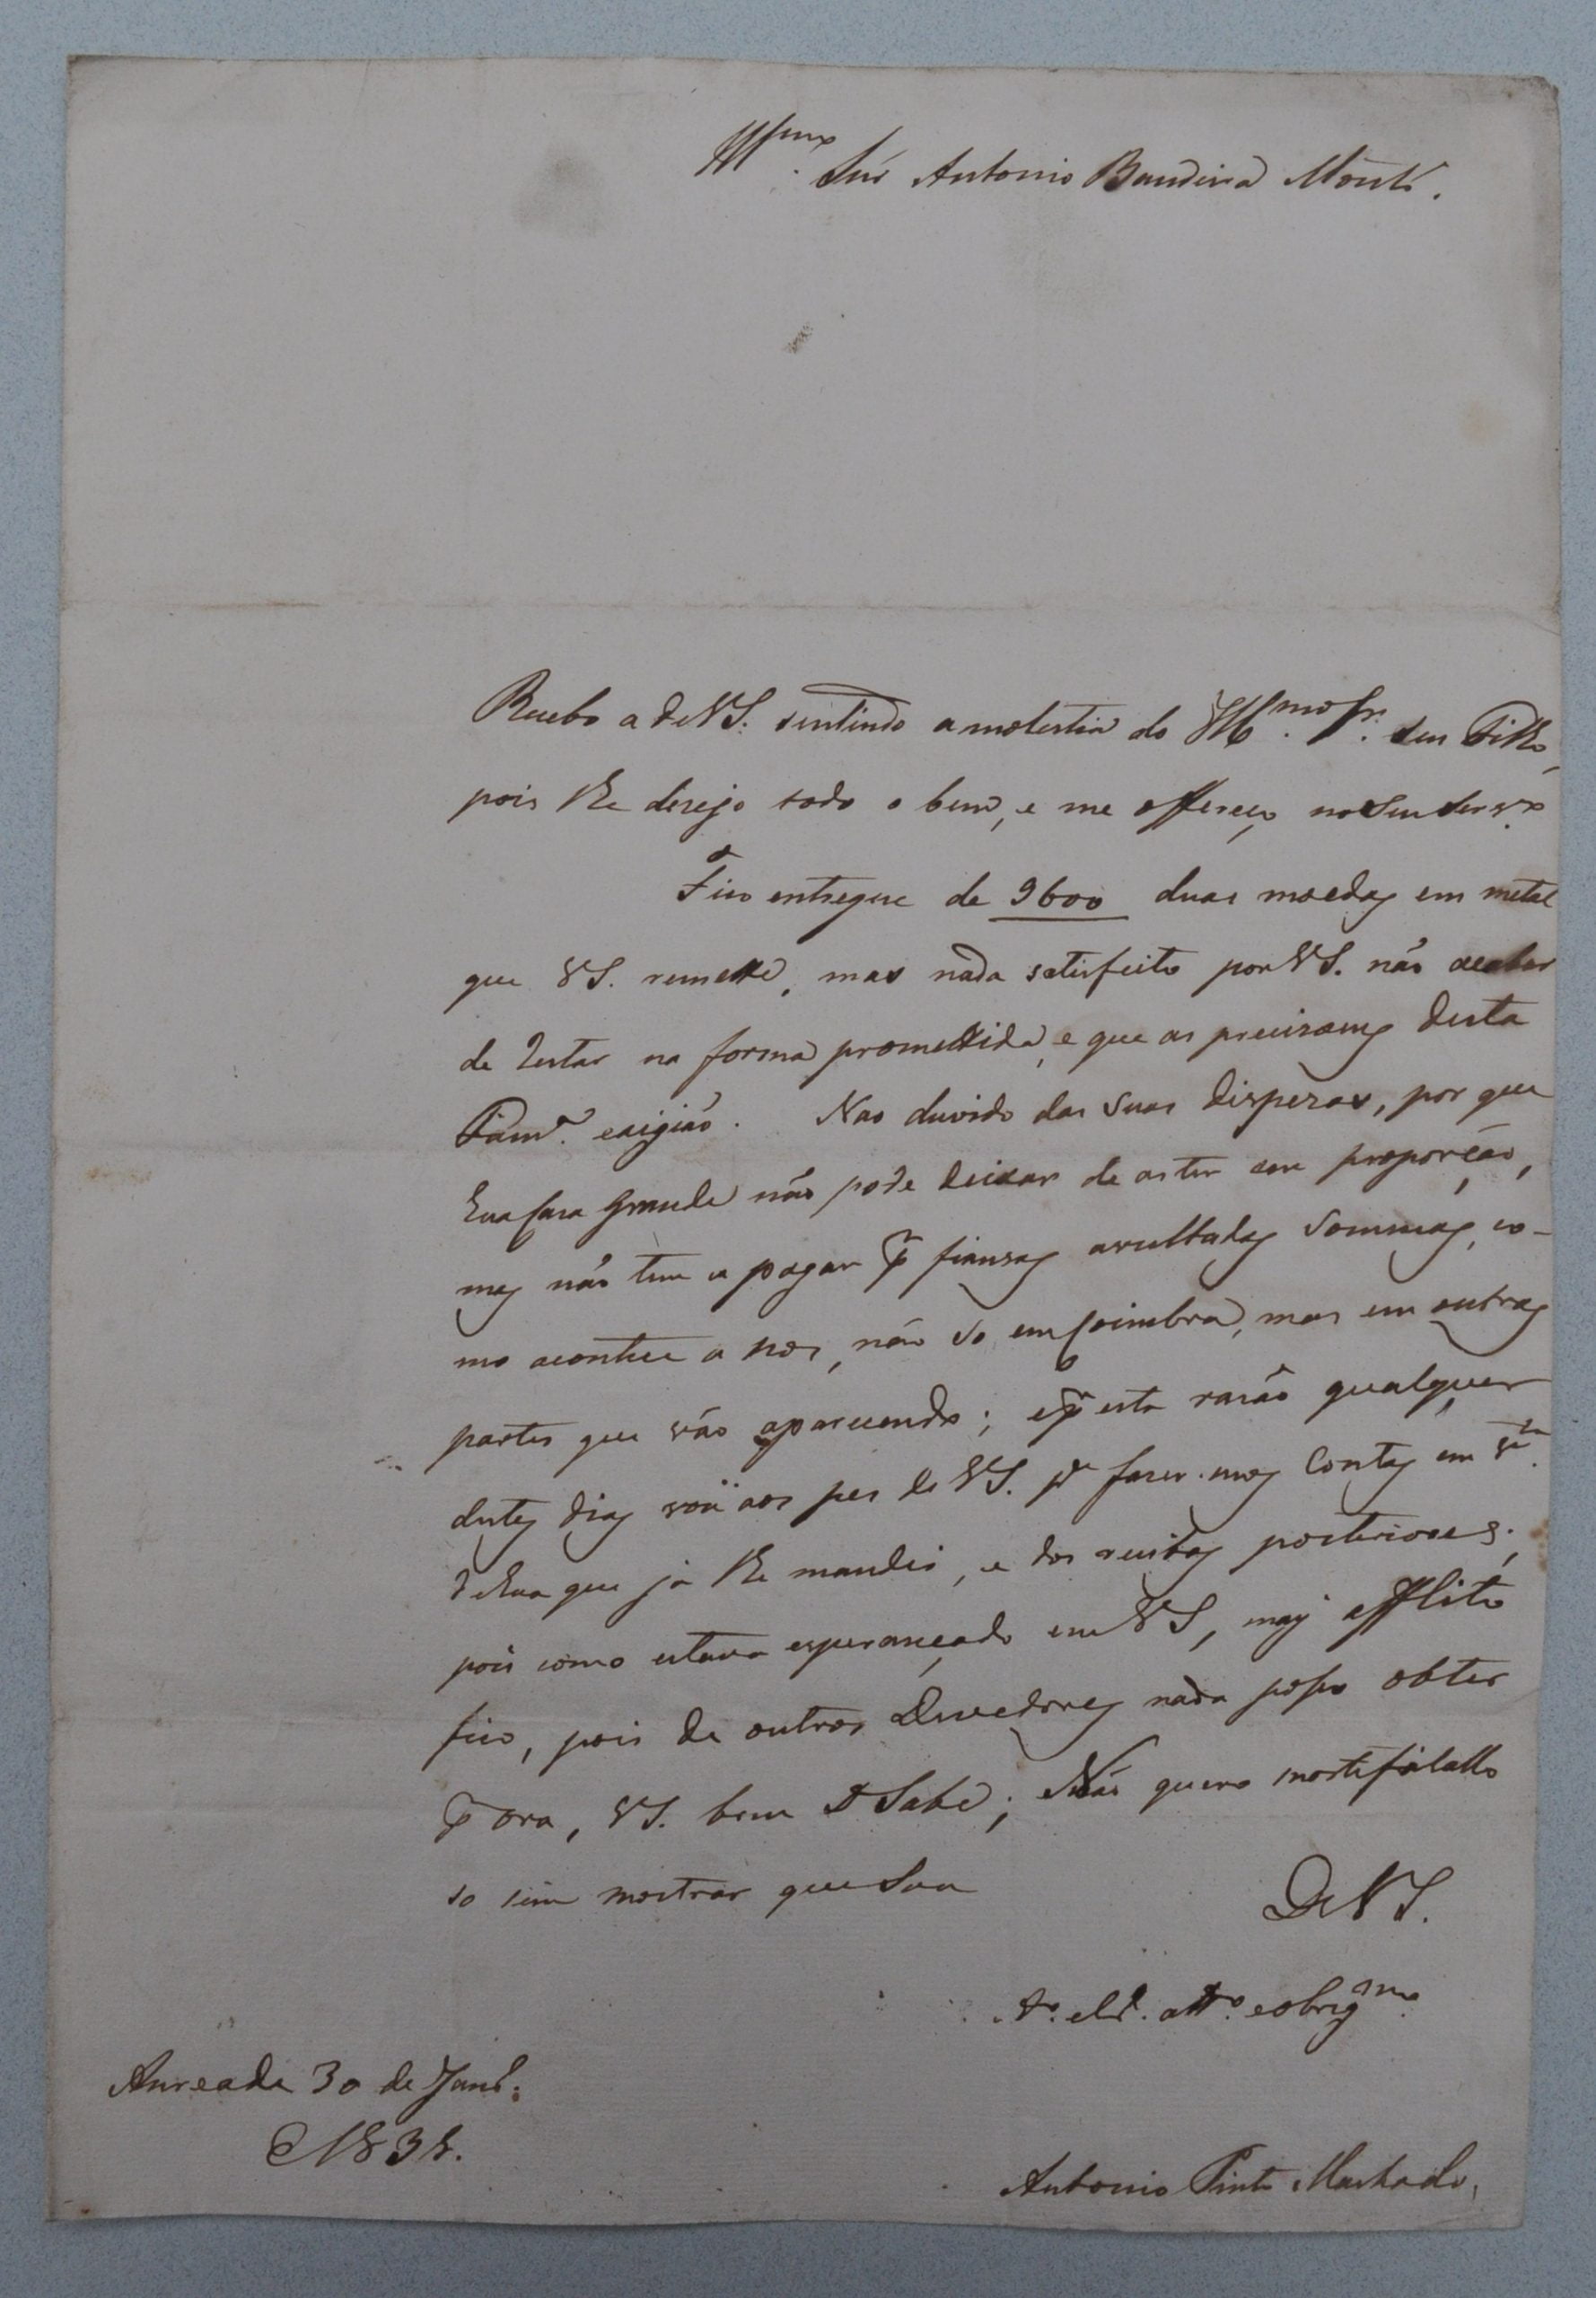 Illmo. Snr Antonio Bandeira Montr.
Recebo a de VS. sentindo a molestia do Illmo. Sr. seu Filho,
pois lhe desejo todo o bem, e me offereço no seu serv.ço
Fico entregue de 9600 duas moedas em metal
que VS. remette, mas nada satisfeito por VS. não acabar
de restar na forma promettida, e que as precisoens desta
Fam.a exigião. Nao duvido das suas dispezas, por que
hua Casa grande não pode deixar de as ter em proporção,
mas não tem a pagar p fianzas avultadas sommas, co-
mo acontece a nos, não so em Coimbra, mas em outras
partes que vão aparecendo; e p esta razão qualquer
destes dias vou aos pes de VS. pa fazer-mos Contas em
de hua que já lhe mandei, e dos recibos posteriores;
pois como estava esperançado em VS, mais afflito
fico, pois de outros Devedores nada posso obter
p ora, VS. bem o Sabe; Não quero mortificallo
so sim mostrar que Sou
De VS.
att.o e obrigmo.
30 de Janr.o
1838.
Antonio Pinto Machado,